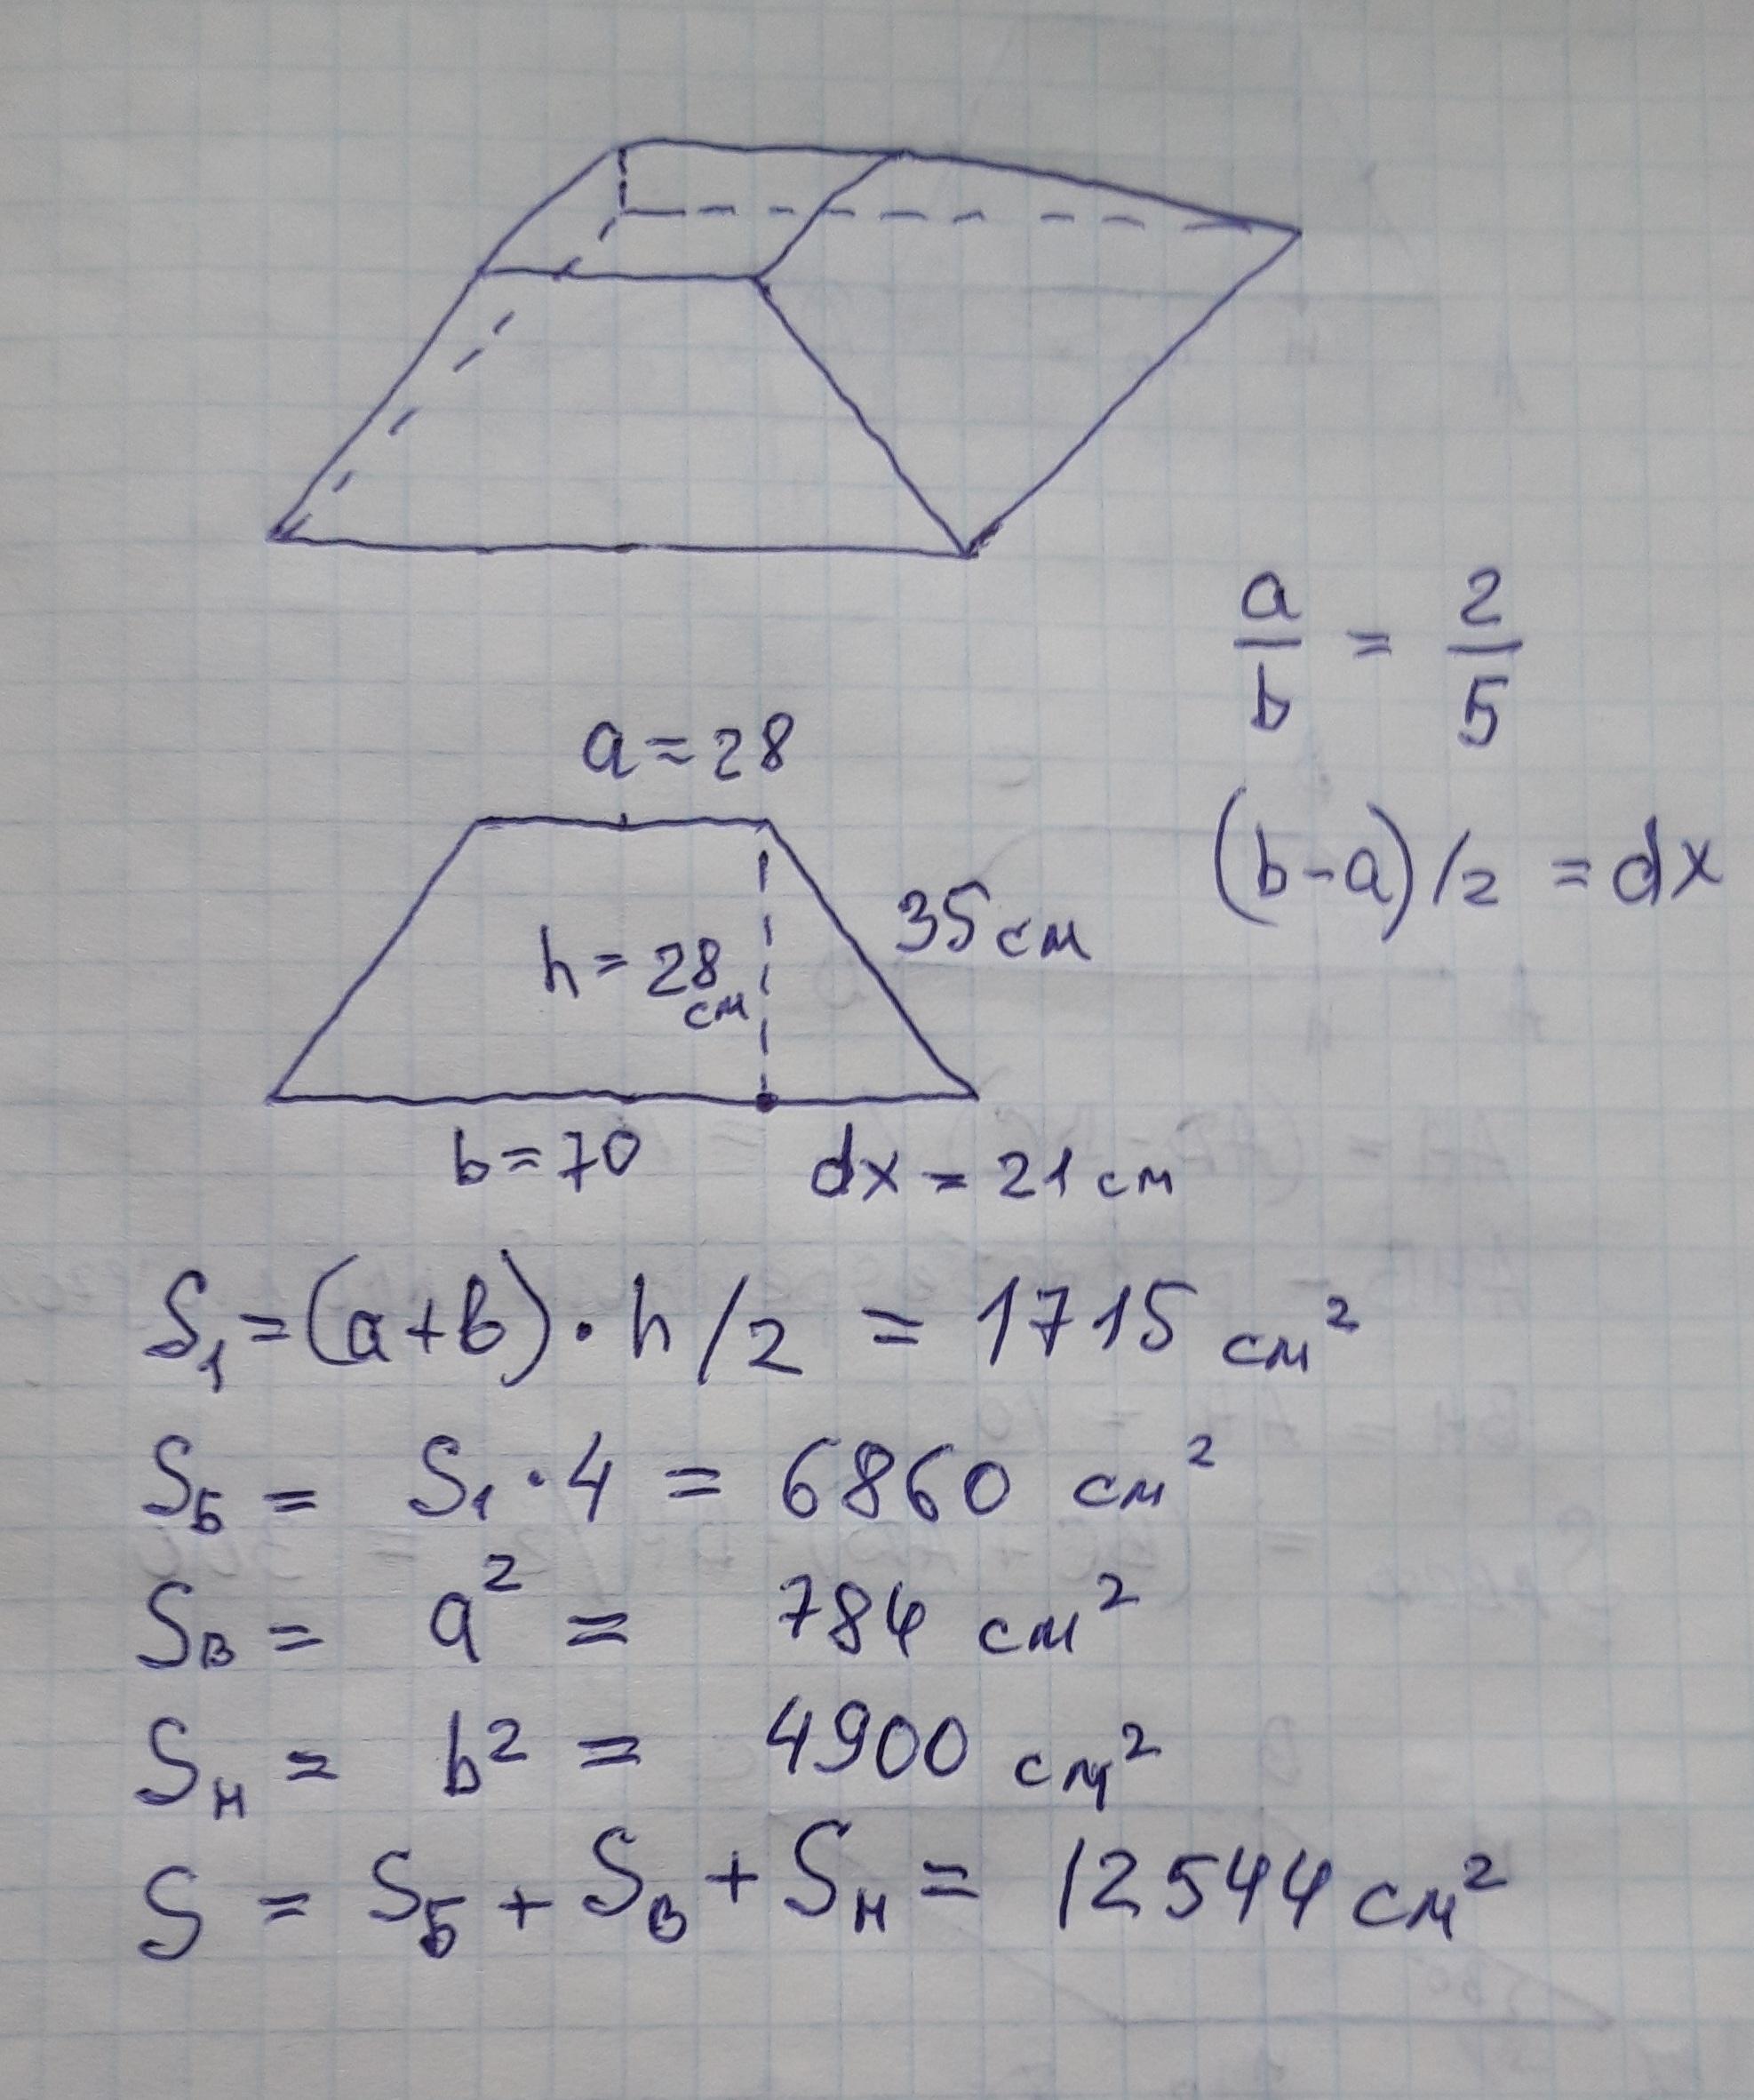 a/b = 2/5
a=28
(b-a)/2 = dx
35см
h=28
см
b=70
dx=21 см
S₁=(a+b)·h/2 = 1715 см²
Sб = S₁·4 = 6860 см²
Sв = a² = 784 см²
Sн = b² = 4900 см²
S = Sб + Sв + Sн = 12544 см²